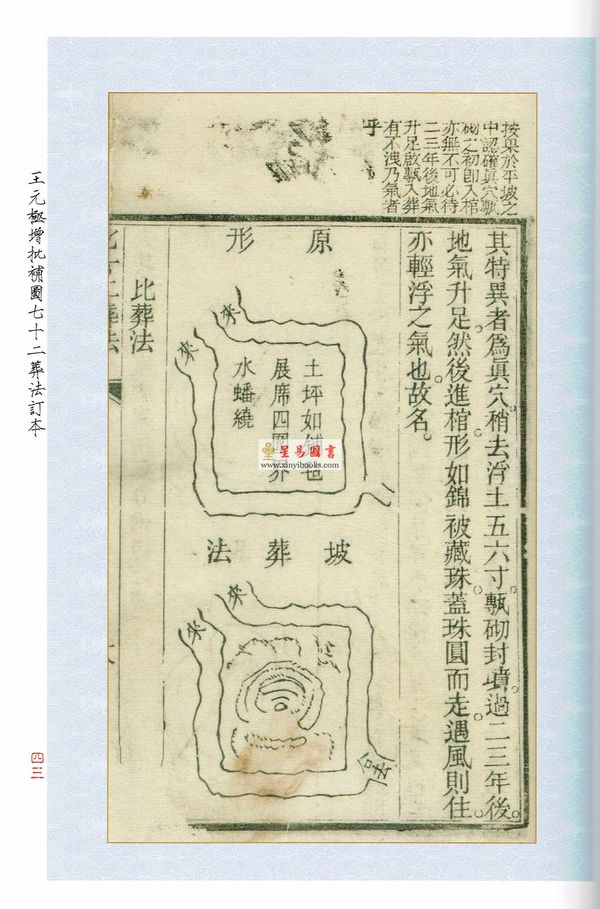 按果於平坡之
中認確眞穴甎
砌之初即入棺
亦無不可必待
二三年後地氣
升足啟甎入葬
有不洩乃氣者
乎
其特異者爲眞穴。稍去浮土五六寸。甎砌封墳。過二三年後。
地氣升足。然後進棺。形如錦被藏珠。蓋珠圓而走。遇風則住
亦輕浮之氣也。故名。
原形
來
來
土坪如
展席四圍界
水蟠繞
星易圖書
www.xinyibooks.com
坡葬法
來
來
比葬法
王元極增批補圖七十二葬法訂本
四三